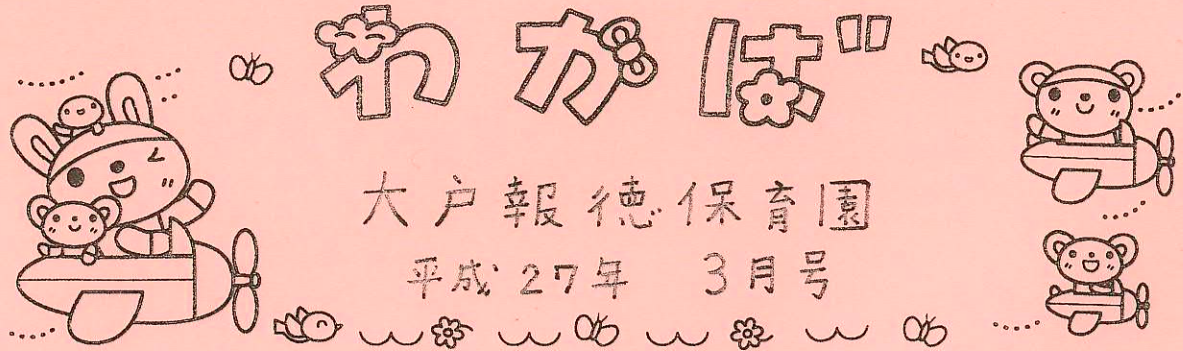 わかば
大戸報徳保育園
平成27年 3月号